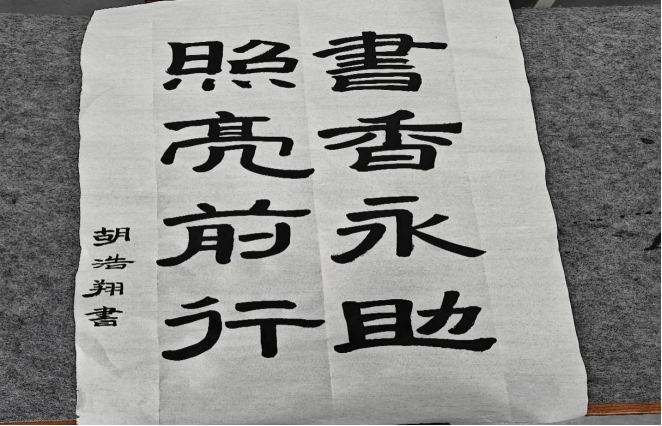 書香永助
照亮前行
胡浩翔書